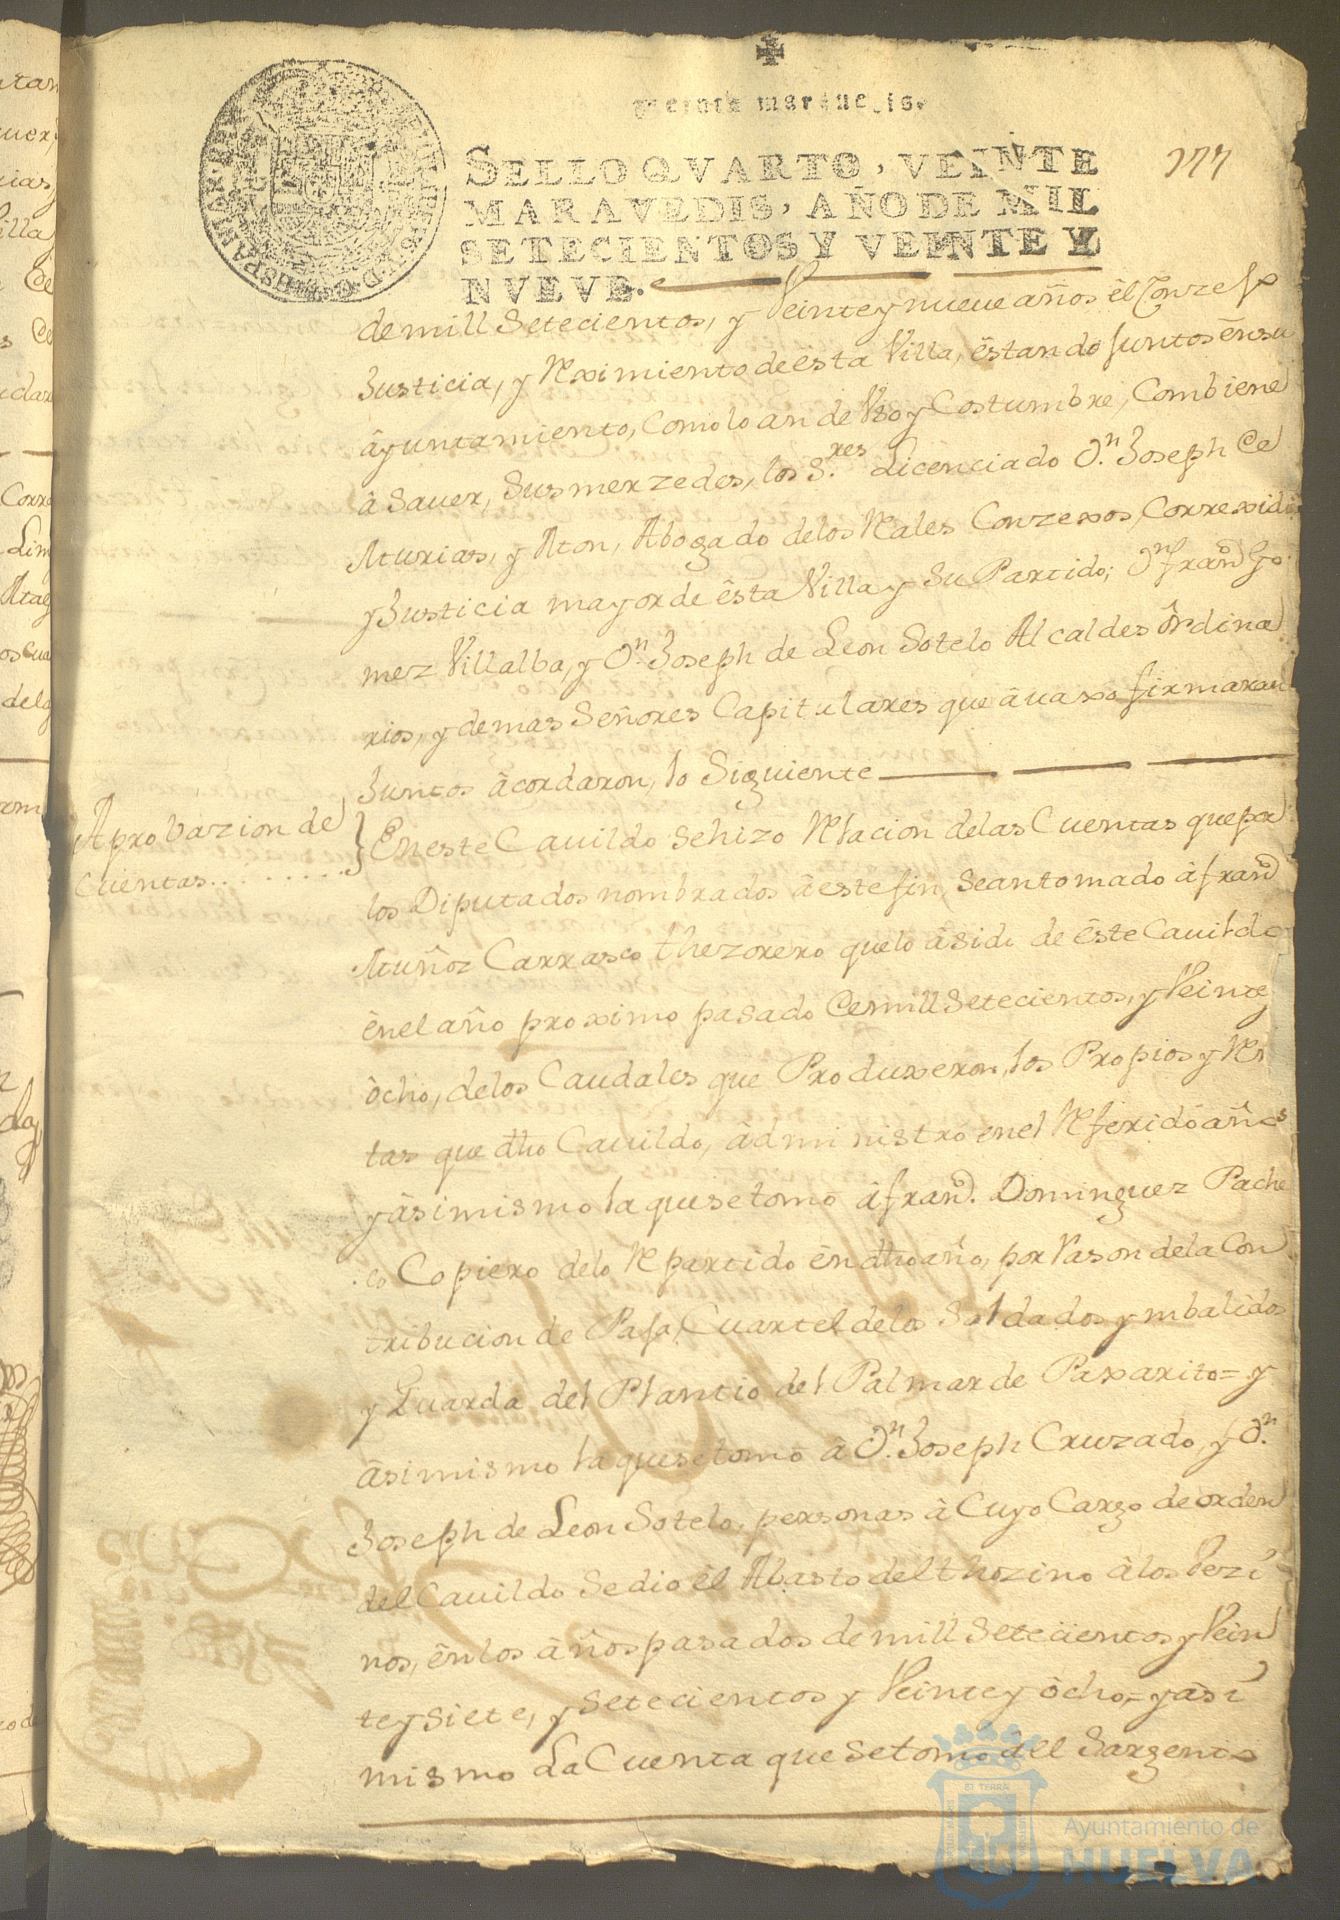 177
SELLO QVARTO, VEINTE
MARAVEDIS, AÑO DE MIL
SETECIENTOS Y VEINTE Y
NVEVE.
de mill Setecientos, y Veinte y nueve años êl Conzejo
Justicia, y Reximiento de esta Villa, êstando Juntos ên su
âyuntamiento, como lo an de Vso y Costumbre, Combiene
â Saver, Sus merzedes, los S.res Licenciado D.n Joseph de
Aturias, y Aton, Abogado de los Reales Conzexos, Correxidor
y Justicia mayor de êsta Villa y Su Partido; D.n fran.co Go
mez Villalba, y D.n Joseph de Leon Sotelo Alcaldes ôrdina
rios, y demas Señores Capitulares que âvaxo firmaran
Juntos âcordaron, lo Siguiente
Aprobazion de
Cuentas.........
En este Cavildo se hizo Relacion de las Cuentas que por
los Diputados nombrados â este fin, se an tomado â fran.co
Muñoz Carrasco thezorero que lo â sido de êste Cavildo
ên el año proximo pasado de mill Setecientos, y Veinte y
ôcho, de los Caudales que Produxeron, los Propios y Ren
tas que dho Cavildo, âdministró en el Referido año
y âsimismo la que se tomo â fran.co Dominguez Pache
co Copiero de lo Repartido ên dho año, por Rason de la Con
tribucion de Paja, Cuartel de los Soldados ymbalidos
y Guarda del Plantio del Palmar de Paxarito= y
âsimismo la que se tomo â D.n Joseph Cruzado, y D.n
Joseph de Leon Sotelo, personas â Cuyo Cargo de orden
del Cavildo Se dio êl Abasto del thozino â los Vezi
nos, ên los âños pasados de mill Setecientos y Vein
te y siete, y Setecientos y Veinte y ôcho,= y âsi
mismo La Cuenta que Se tomo âl Sargento
EL TERRAE
Ayuntamiento de
HUELVA